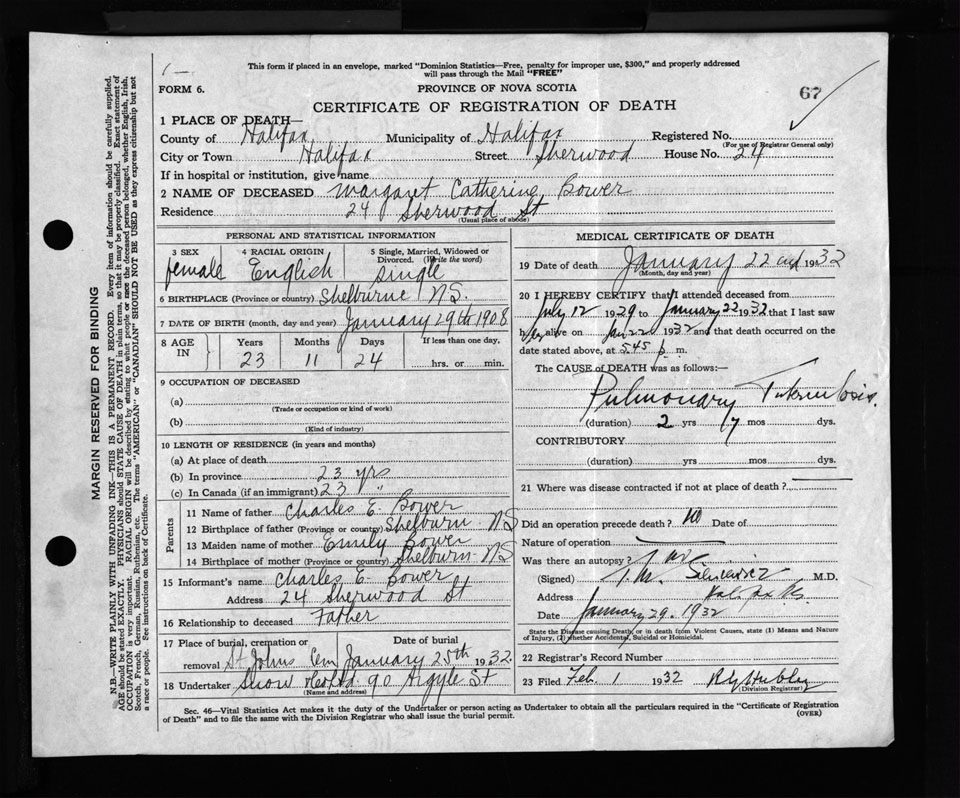 This form if placed in an envelope, marked "Dominion Statistics—Free, penalty for improper use, $300," and properly addressed
will pass through the Mail "FREE"
FORM 6.
PROVINCE OF NOVA SCOTIA
67
CERTIFICATE OF REGISTRATION OF DEATH
1 PLACE OF DEATH—
County of Halifax Municipality of Halifax Registered No.
(For use of Registrar General only)
City or Town Halifax Street Sherwood House No. 24
If in hospital or institution, give name
2 NAME OF DECEASED Margaret Catherine Bower
Residence 24 Sherwood St
(Usual place of abode)
PERSONAL AND STATISTICAL INFORMATION
3 SEX 4 RACIAL ORIGIN 5 Single, Married, Widowed or Divorced. (Write the word)
female English single
6 BIRTHPLACE (Province or country) Shelburne N.S.
7 DATE OF BIRTH (month, day and year) January 29th 1908
8 AGE IN Years Months Days If less than one day,
23 11 24 hrs. or min.
9 OCCUPATION OF DECEASED
(a)
(Trade or occupation or kind of work)
(b)
(Kind of industry)
10 LENGTH OF RESIDENCE (in years and months)
(a) At place of death
(b) In province 23 yrs
(c) In Canada (if an immigrant) 23 "
Parents
11 Name of father Charles E. Bower
12 Birthplace of father (Province or country) Shelburn NS
13 Maiden name of mother Emily Bower
14 Birthplace of mother (Province or country) Shelburn NS
15 Informant's name Charles E. Bower
Address 24 Sherwood St
16 Relationship to deceased Father
17 Place of burial, cremation or removal Date of burial
St Johns Cem January 25th 1932
18 Undertaker Snow 90 Argyle St
(Name and address)
MEDICAL CERTIFICATE OF DEATH
19 Date of death January 22 1932
(Month, day and year)
20 I HEREBY CERTIFY that I attended deceased from
July 12 1929 to January 22 1932 that I last saw
her alive on Jan 22 1932 and that death occurred on
date stated above, at 5.45 p. m.
The CAUSE OF DEATH was as follows:—
Pulmonary Tuberculosis.
(duration) 2 yrs mos dys.
CONTRIBUTORY
(duration) yrs mos dys.
21 Where was disease contracted if not at place of death?
Did an operation precede death? No Date of
Nature of operation
Was there an autopsy?
(Signed) M.D.
Address Halifax NS.
Date January 29. 1932
State the Disease causing Death, or in death from Violent Causes, state (1) Means and Nature
of Injury, (2) whether Accidental, Suicidal or Homicidal.
22 Registrar's Record Number
23 Filed Feb. 1 1932
(Division Registrar)
Sec. 46—Vital Statistics Act makes it the duty of the Undertaker or person acting as Undertaker to obtain all the particulars required in the "Certificate of Registration
of Death" and to file the same with the Division Registrar who shall issue the burial permit.
(OVER)
MARGIN RESERVED FOR BINDING
N.B.—WRITE PLAINLY WITH UNFADING INK—THIS IS A PERMANENT RECORD. Every item of information should be carefully supplied.
AGE should be stated EXACTLY. PHYSICIANS should STATE CAUSE OF DEATH in plain terms, so that it may be properly classified. Exact statement of
OCCUPATION is very important. RACIAL ORIGIN will be described by stating to what people or race the deceased person belonged, whether English, Irish,
Scotch, French, German, Russian, Ruthenian, etc. The terms "AMERICAN" or "CANADIAN" SHOULD NOT BE USED as they express citizenship but not
a race or people. See instructions on back of Certificate.